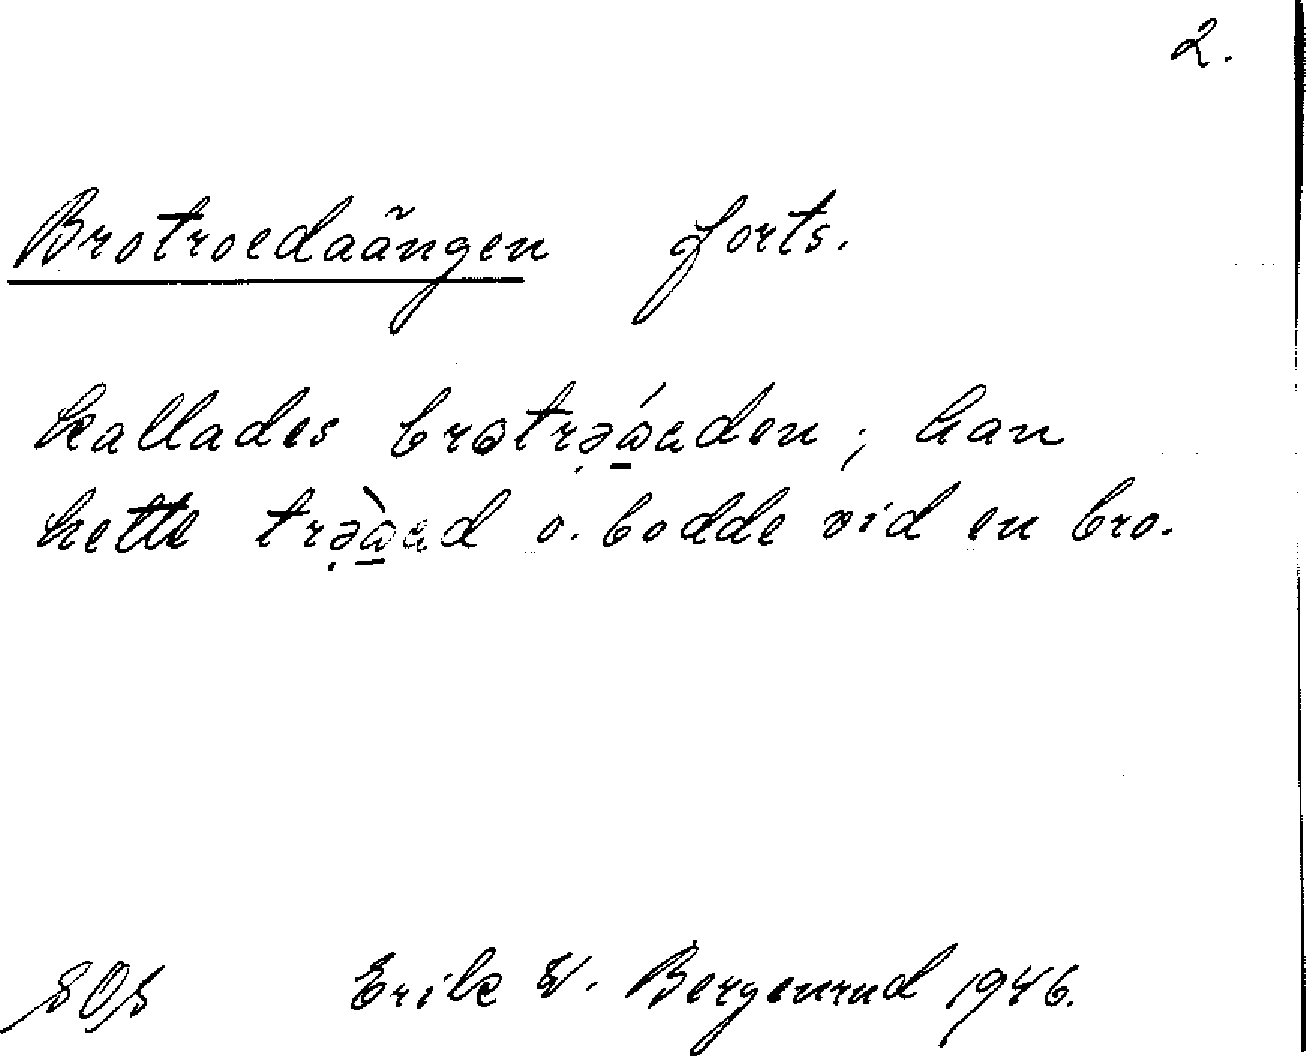 2.
Brotroedaängen forts.
kallades brɷtrə̣ɷ́ɐden; han
hette trə̣ɷ̀ɐd o. bodde vid en bro.
Erik W. Bergenrud 1946.